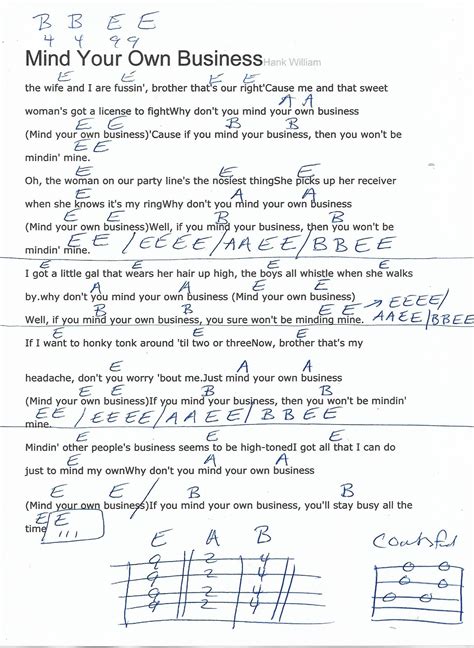 B B E E
4 4 9 9
Mind Your Own Business Hank William
E E E E
the wife and I are fussin', brother that's our right'Cause me and that sweet
A A
woman's got a license to fightWhy don't you mind your own business
E E B B
(Mind your own business)'Cause if you mind your business, then you won't be
E E
mindin' mine.
E E E
Oh, the woman on our party line's the nosiest thingShe picks up her receiver
E A A
when she knows it's my ringWhy don't you mind your own business
E E B B
(Mind your own business)Well, if you mind your business, then you won't be
E E / E E E E / A A E E / B B E E
mindin' mine.
E E E E
I got a little gal that wears her hair up high, the boys all whistle when she walks
A A E E
by.why don't you mind your own business (Mind your own business)
B B E E → E E E E /
Well, if you mind your business, you sure won't be minding mine. A A E E / B B E E
E E
If I want to honky tonk around 'til two or threeNow, brother that's my
E A A
headache, don't you worry 'bout me.Just mind your own business
E E B B
(Mind your own business)If you mind your business, then you won't be mindin'
E E / E E E E / A A E E / B B E E
mine.
E E E
Mindin' other people's business seems to be high-tonedI got all that I can do
E A A
just to mind my ownWhy don't you mind your own business
E E / B B
(Mind your own business)If you mind your own business, you'll stay busy all the
E E
time
E A B
9 2 4
9 2 4
9 2 4
9 2 4